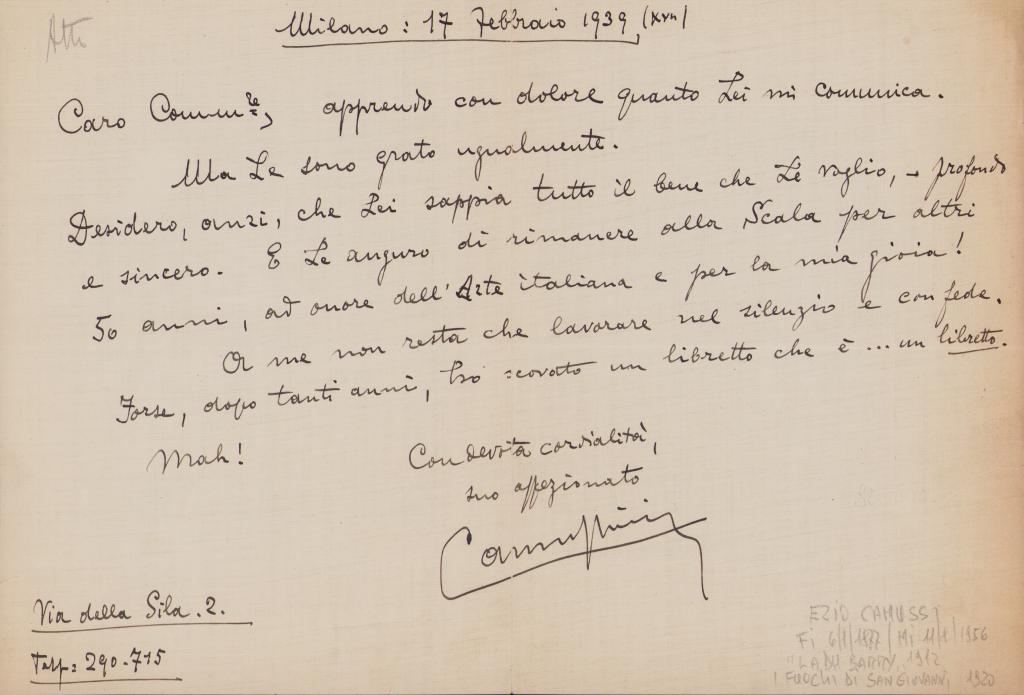 Atti
Milano: 17 Febbraio 1939, (XVII)
Caro Comm.re, apprendo con dolore quanto Lei mi comunica.
Ma Le sono grato ugualmente.
Desidero, anzi, che Lei sappia tutto il bene che Le voglio, - profondo
e sincero. E Le auguro di rimanere alla Scala per altri
50 anni, ad onore dell'Arte italiana e per la mia gioia!
A me non resta che lavorare nel silenzio e con fede.
Forse, dopo tanti anni, ho scovato un libretto che è ... un libretto.
Mah!
Con devota cordialità,
suo affezionato
Camussi
Via della Sila. 2.
Telf: 290-715
EZIO CAMUSSI
FI 6/1/1877 / MI 11/8/1956
"LA DU BARRY, 1912
I FUOCHI DI SAN GIOVANNI, 1920